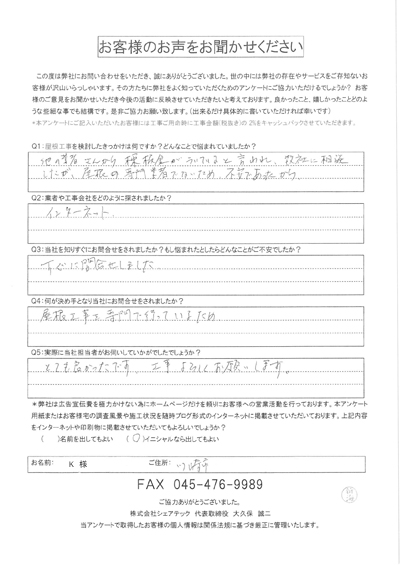 お客様のお声をお聞かせください
この度は弊社にお問い合わせをいただき、誠にありがとうございました。世の中には弊社の存在やサービスをご存知ないお
客様が沢山いらっしゃいます。その方たちに弊社をよく知っていただくためのアンケートにご協力いただけるでしょうか？ お客
様のご意見をお聞かせいただき今後の活動に反映させていただきたいと考えております。良かったこと、嬉しかったことどのよ
うな些細な事でも結構です。是非ご協力お願い致します。（出来るだけ具体的に書いていただければ幸いです）
*本アンケートにご記入いただいたお客様には工事ご用命時に工事金額(税抜き)の 2%をキャッシュバックさせていただきます。
Q1：屋根工事を検討したきっかけは何ですか？どんなことで悩まれていましたか？
他の業者さんから棟板金がういていると言われ、数社に相談
したが、屋根の専門業者でないため、不安であったから。
Q2：業者や工事会社をどのように探されましたか？
インターネット
Q3：当社を知りすぐにお問合せをされましたか？もし悩まれたとしたらどんなことがご不安でしたか？
すぐに問合せしました
Q4：何が決め手となり当社にお問合せをされましたか？
屋根工事を専門で行っているため
Q5：実際に当社担当者がお伺いしていかがでしたでしょうか？
とても良かったです 工事よろしくお願いします。
*弊社は広告宣伝費を極力かけない為にホームページだけを頼りにお客様への営業活動を行っております。本アンケート
用紙またはお客様宅の調査風景や施工状況を随時ブログ形式のインターネットに掲載させていただいております。上記内容
をインターネットや印刷物に掲載させていただいてもよろしいでしょうか？
（ ）名前を出してもよい （○）イニシャルなら出してもよい
お名前： K 様 ご住所： 川崎市
FAX 045-476-9989
ご協力ありがとうございました。
株式会社シェアテック 代表取締役 大久保 誠二
当アンケートで取得したお客様の個人情報は関係法規に基づき厳正に管理いたします。